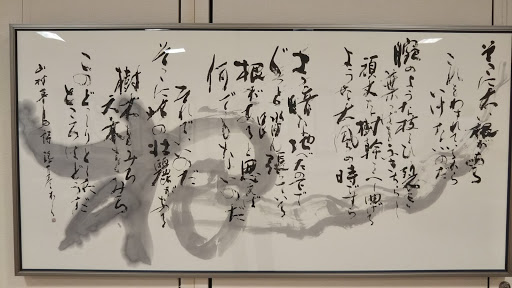 そこに太い根がある
これをわすれているから
いけないのだ
腕のような枝をひっ裂き
葉っぱをふきちらし
頑丈な樹幹をへし曲げる
ような大風の時ですら
まっ暗な地べたの下で
ぐっと踏張っている
根があると思えば
何でもないのだ
それでいいのだ
そこに此の壮麗がある
樹木をみろ
大木をみろ
このどっしりとした
ところはどうだ
山村暮鳥詩